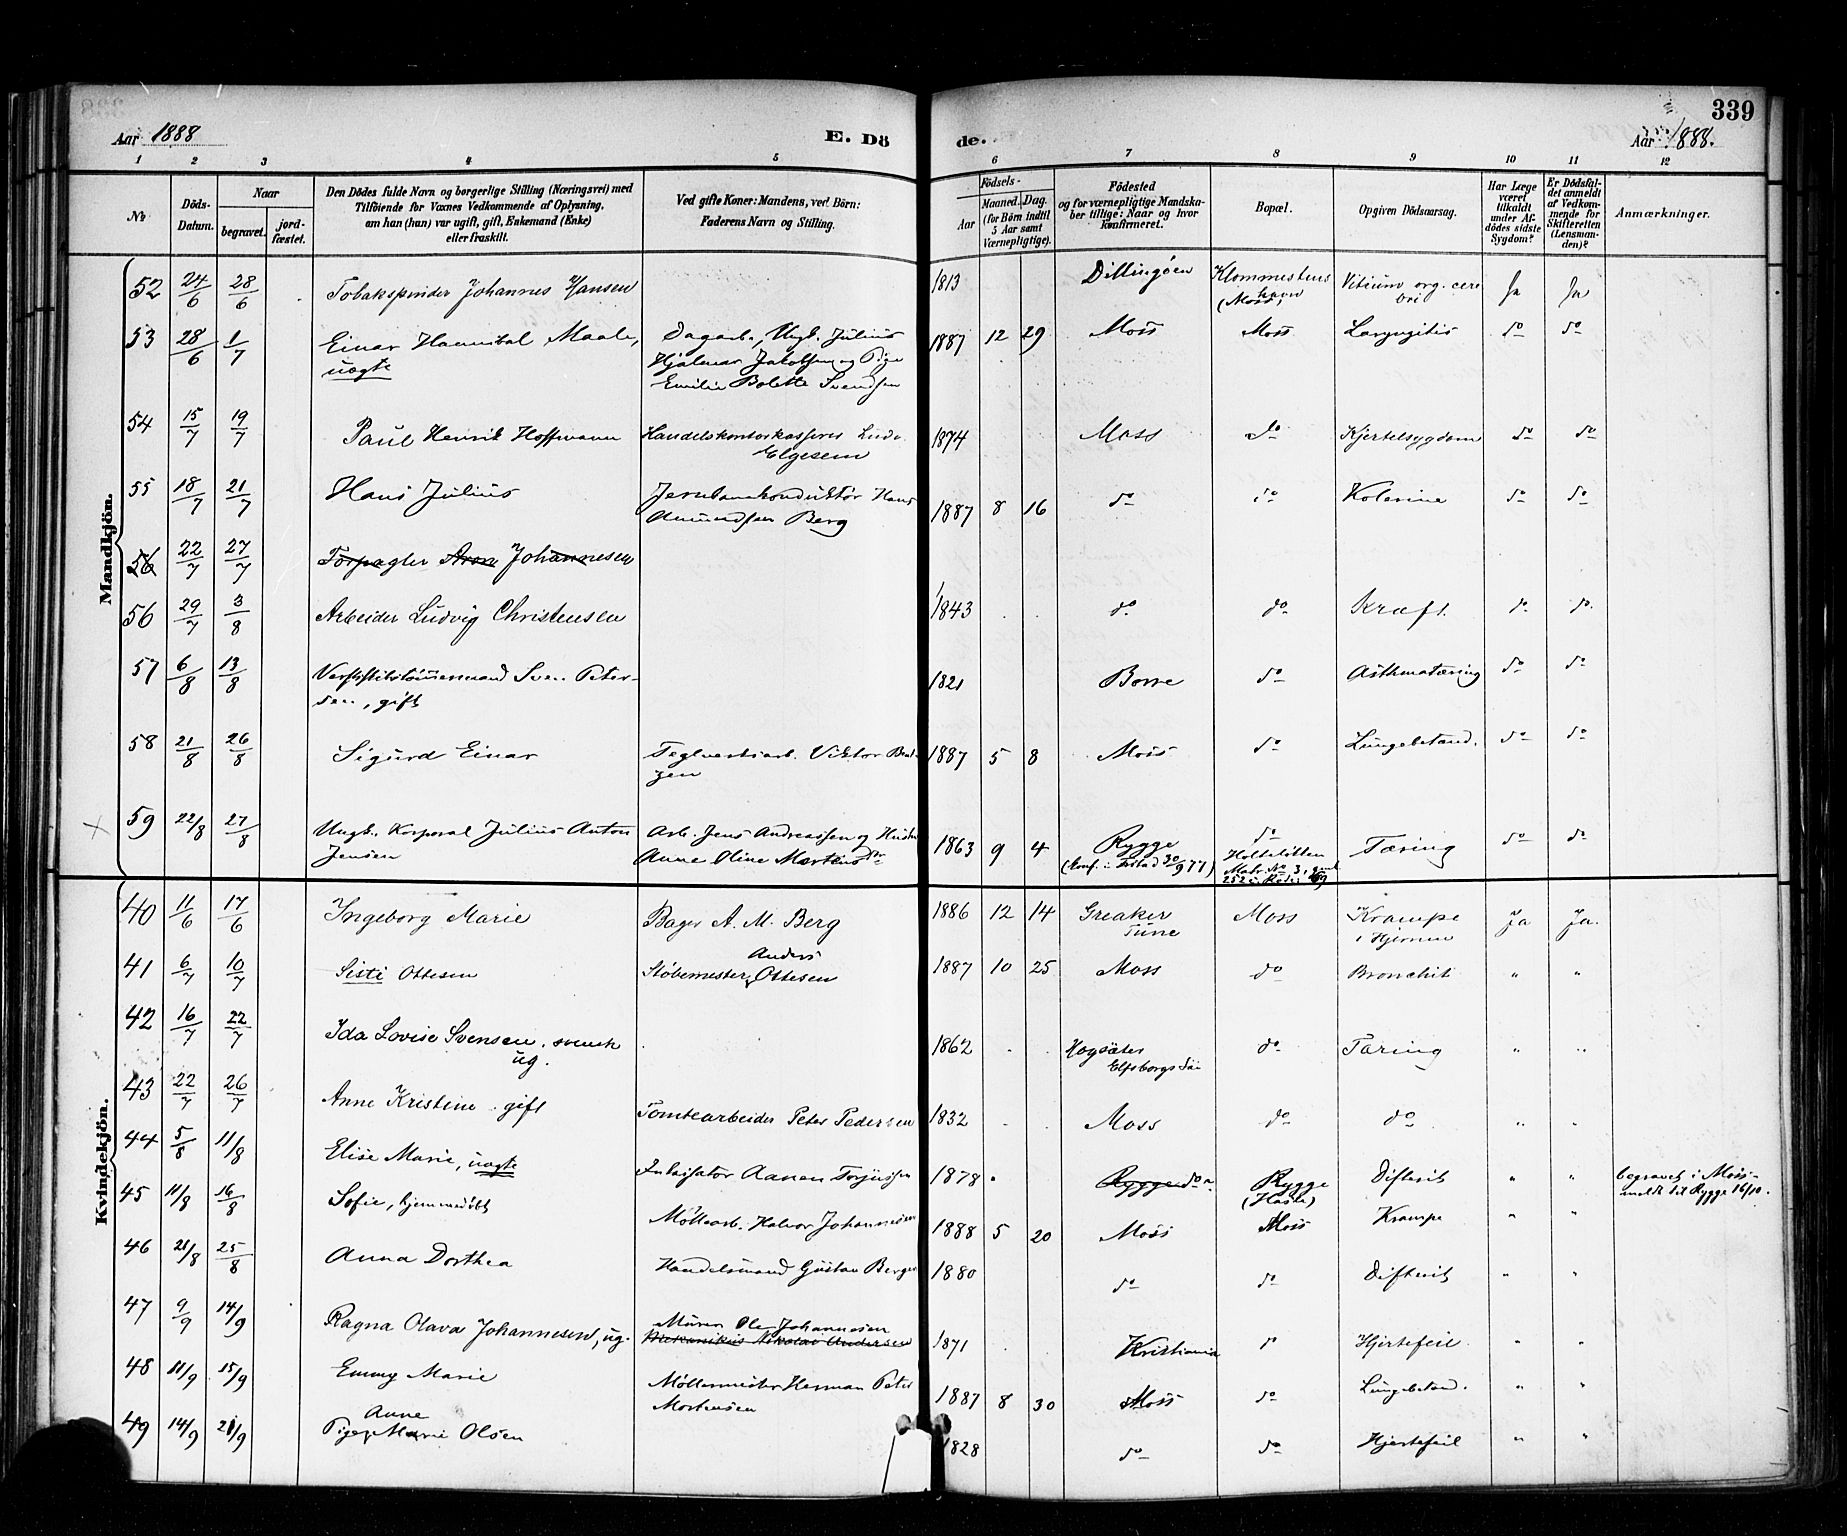 339
Aar 1888
E. Dö
de.
Aar 1888.
1 2 3 4 5 6 7 8 9 10 11 12
No
Döds-
Datum.
Naar
begravet.
jord-
fæstet.
Den Dödes fulde Navn og borgerlige Stilling (Næringsvei) med
Tilföiende for Vœnes Vedkommende af Oplysning,
om han (hun) var ugift, gift, Enkemand (Enke)
eller fraskilt.
Ved gifte Koner: Mandens, ved Börn:
Faderens Navn og Stilling.
Födsels-
Aar
Maaned. Dag.
(for Börn indtil
5 Aar samt
Værnepligtige).
Födested
og for værnepligtige Mandska-
ber tillige: Naar og hvor
konfirmeret.
Bopæl.
Opgiven Dödsaarsag.
Har Læge
været
tilkaldt
under Af-
dödes sidste
Sygdom?
Er Dödsfal-
det anmeldt
af Vedkom-
mende for
Skifteretten
(Lensman-
den)?
Anmærkninger.
Mandkjön.
52 24/6 28/6 Tobakspinder Johannes Hansen 1813 Dillingöen Klommestens
havn
(Moss) Vitium org. cere
bri Ja Ja
53 28/6 1/7 Einar Hannibal Maale, Dagarb., Ungk. Julius 1887 12 29 Moss Moss Laryngitis do do
uægte Hjalmar Jakobsen og Pige
Emilie Bolette Svendsen
54 15/7 19/7 Paul Henrik Hoffmann Handelskontorkasserer 1874 Moss do Kjertelsygdom do do
Elgesem
55 18/7 21/7 Hans Julius Jernbanekonduktör Hans 1887 8 16 do do Kolerine do do
Amundsen Berg
56 22/7 27/7 Forpagter Aron Johannesen
56 29/7 3/8 Arbeider Ludvig Christensen 1843 do do Kræft. do do.
57 6/8 13/8 Sven Peter- 1821 Borre do Asthmatæring do do
sen, gift
58 21/8 26/8 Sigurd Einar Teglverksarb. Viktor 1887 5 8 Moss do Lungebetænd. do do
59 22/8 27/8 Ungk. Korporal Julius Anton Arb. Jens Andreassen og Hustru 1863 9 4 Rygge do Tæring do do
Jensen Anne Oline Martinsdr
Kvindekjön.
40 11/6 17/6 Ingeborg Marie Bager A. M. Berg 1886 12 14 Greaker Moss Krampe Ja Ja.
Tune i Hjernen
41 6/7 10/7 Sisti Ottesen Anders
Støbemester Ottesen 1887 10 25 Moss do Bronchit " "
42 16/7 22/7 Ida Lovise Svensen, svensk 1862 . . Högsäter do Tæring " "
ug. Elfsborgs län
43 22/7 26/7 Anne Kristine, gift Tomtearbeider Peter Pedersen 1832 . . Moss do do " "
44 5/8 11/8 Elise Marie, uægte Inkassator Aanen Torjussen 1878 . Rygge do Rygge Difterit " " begravet i Moss-
(Hasle) meldt til Rygge 16/10.
45 11/8 16/8 Sofie, hjemmedøbt Möllearb. Halvor Johannesen 1888 5 20 Moss Moss Krampe " "
46 21/8 25/8 Anna Dorthea Handelsmand Gustav Berger 1880 do do Difterit " "
47 9/9 14/9 Ragna Olava Johannesen, ug. Murer Ole Johannesen
Mekanikus Nikolai Andersen 1871 . . Kristiania Hjertefeil " "
48 11/9 15/9 Emmy Marie Möllermester Herman Peter 1887 8 30 Moss do Lungebetænd. " "
Mortensen
49 14/9 21/9 Anne
Pige Marie Olsen 1828 do do Hjertefeil " "